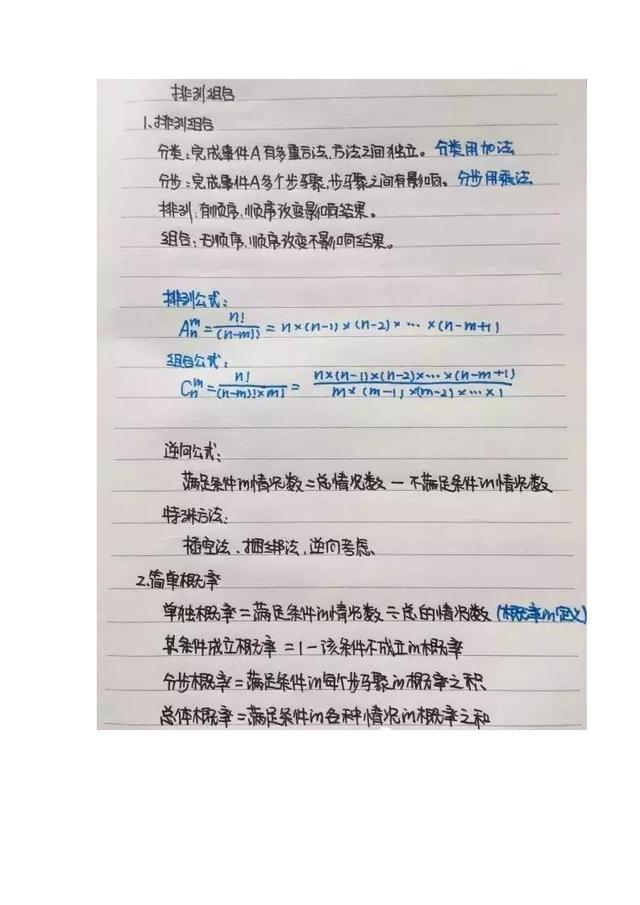 排列组合
1、排列组合
分类:完成事件A有多重方法,方法之间独立。分类用加法
分步:完成事件A多个步骤,步骤之间有影响。分步用乘法
排列:有顺序,顺序改变影响结果。
组合:无顺序,顺序改变不影响结果。
排列公式:
A_n^m = n!/(n-m)! = n×(n-1)×(n-2)×…×(n-m+1)
组合公式:
C_n^m = n!/((n-m)!×m!) = (n×(n-1)×(n-2)×…×(n-m+1))/(m×(m-1)×(m-2)×…×1)
逆向公式:
满足条件的情况数=总情况数-不满足条件的情况数
特殊方法:
插空法、捆绑法,逆向考虑、
2、简单概率
单独概率=满足条件的情况数÷总的情况数(概率的定义)
某条件成立概率=1-该条件不成立的概率
分步概率=满足条件的每个步骤的概率之积
总体概率=满足条件的各种情况的概率之和